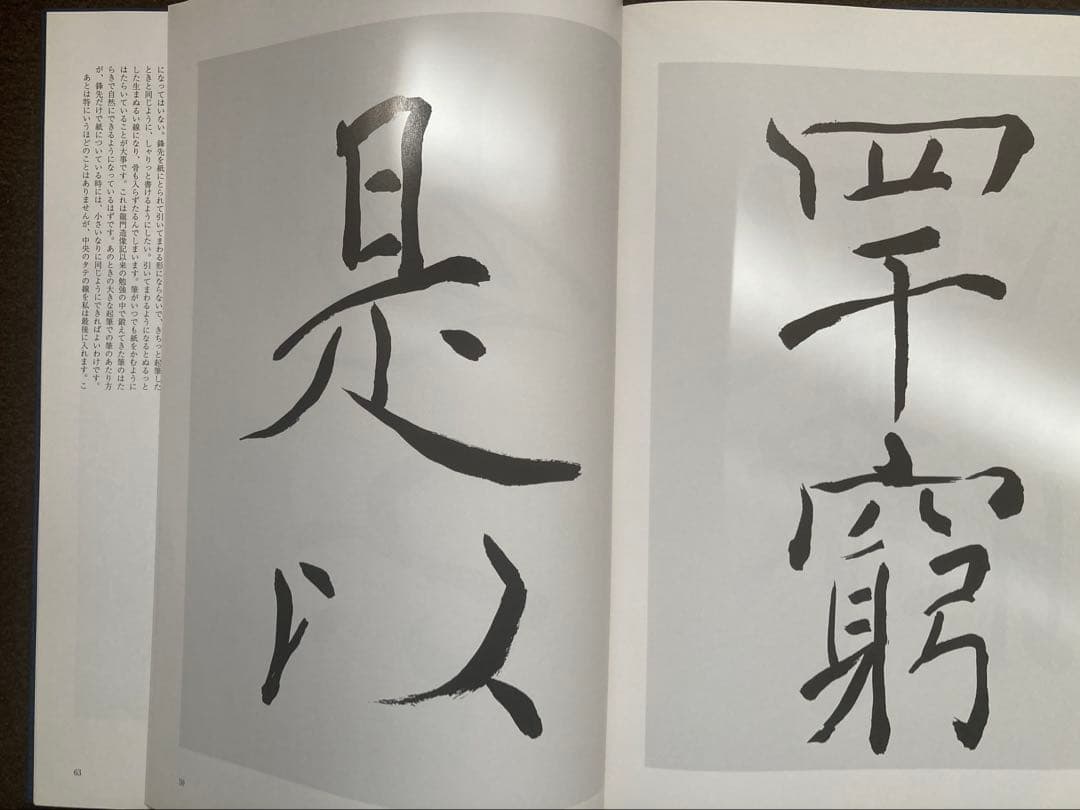 罕窮
是以
59
になってはいない。鋒先を紙にとられて引いてまわる形にならないで、きちっと起筆した
ときと同じように、しゃりっと書けるようにしたい。引いてまわるようになるとぬるっと
した生まぬるい線になり、骨も入らずたるんでしまいます。筆がいつでも紙をかむように
はたらいていることが大事です。これは龍門造像記以来の勉強の中で鍛えてきた筆のはた
らきで自然にできるようになっているはずです。あのときの大きな起筆での筆のあたり方
が、鋒先だけで紙についている時には、小さいなりに同じようにできればよいわけです。
あとは特にいうほどのことはありませんが、中央のタテの線を私は最後に入れます。こ
63